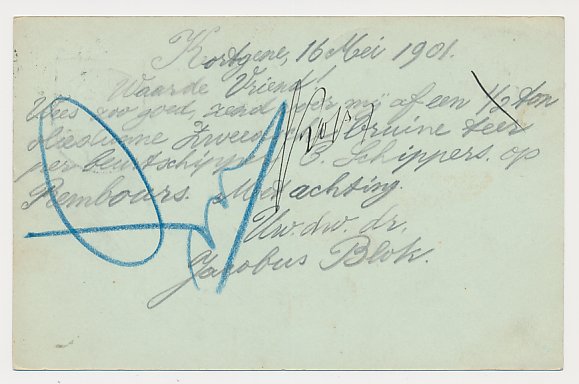 Kortgene, 16 Mei 1901.
Waarde Vriend!
Wees zoo goed, zend voor mij af een 1/2 ton
bruine teer
per C. Schippers. op
Rembours. Met achting.
Uw. dw. dr.
Jacobus Blok.